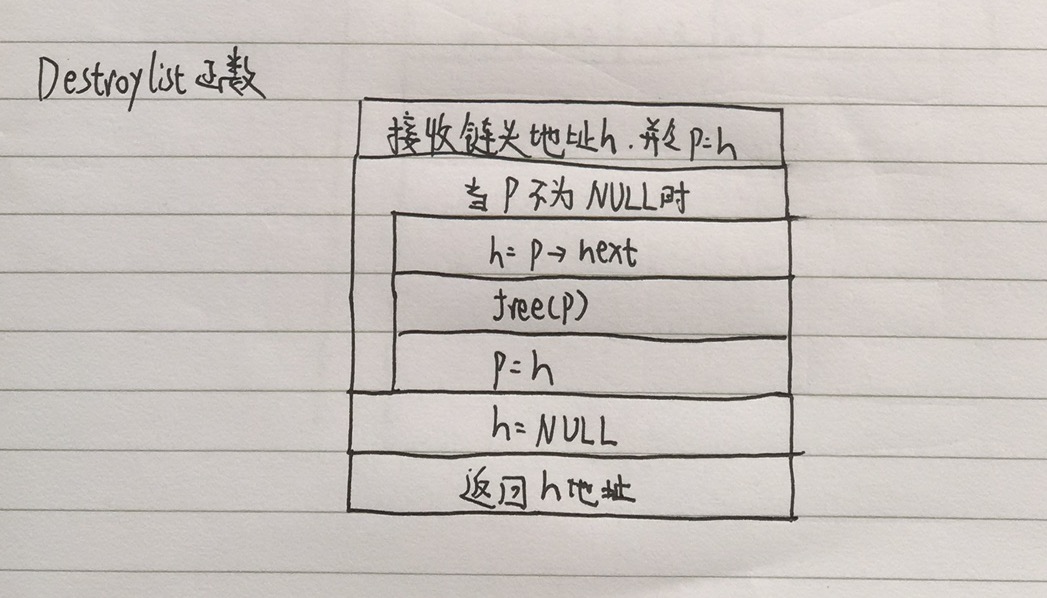 Destroylist函数
接收链头地址h.并令p=h
当P不为NULL时
h=p→next
free(p)
p=h
h=NULL
返回h地址